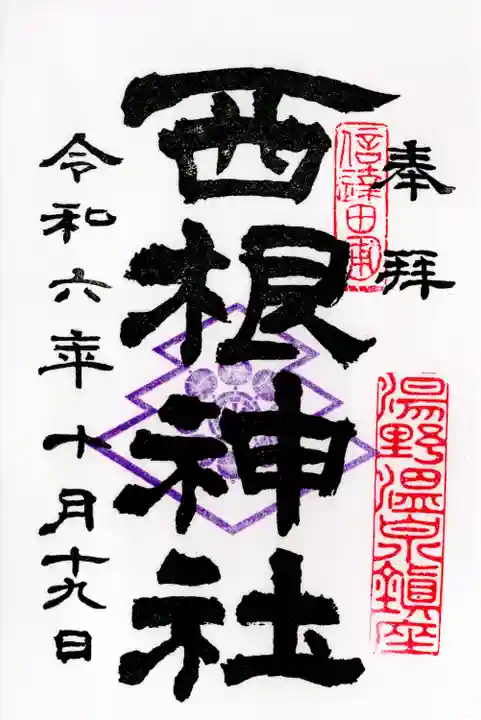 奉拝
信達田東
湯野温泉鎮座
西根神社
令和六年十月十九日